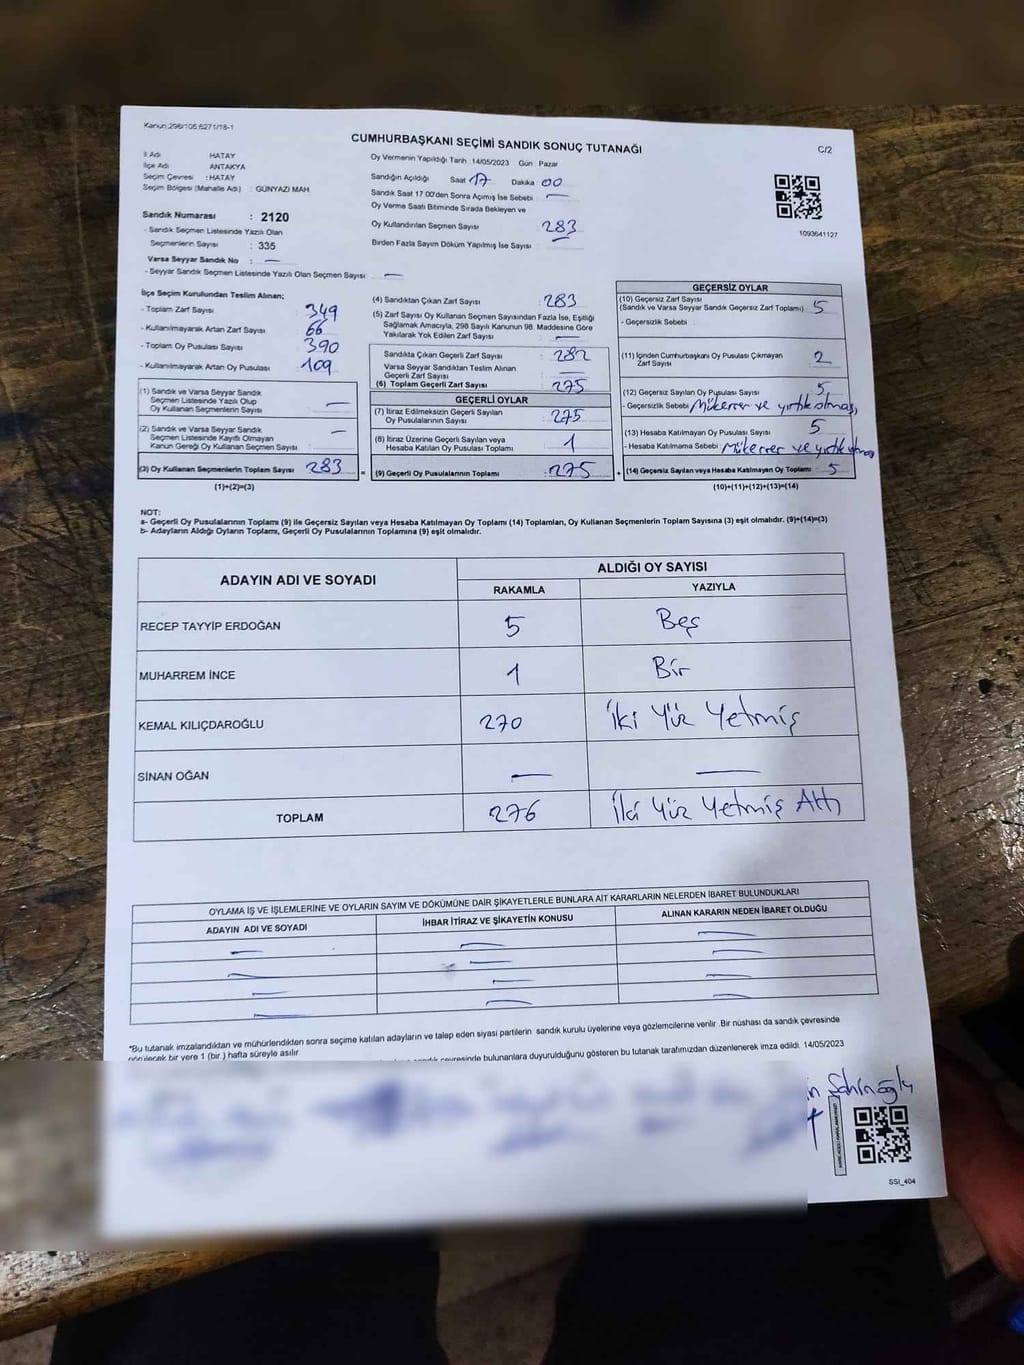 Kanun:298/105;6271/18-1
CUMHURBAŞKANI SEÇİMİ SANDIK SONUÇ TUTANAĞI
C/2
İl Adı HATAY
İlçe Adı ANTAKYA
Seçim Çevresi : HATAY
Seçim Bölgesi (Mahalle Adı) : GÜNYAZI MAH.
Sandık Numarası : 2120
- Sandık Seçmen Listesinde Yazılı Olan
Seçmenlerin Sayısı : 335
Varsa Seyyar Sandık No : —
- Seyyar Sandık Seçmen Listesinde Yazılı Olan Seçmen Sayısı: —
Oy Vermenin Yapıldığı Tarih 14/05/2023 Gün : Pazar
Sandığın Açıldığı Saat 17 Dakika 00
Sandık Saat 17.00'den Sonra Açılmış İse Sebebi —
Oy Verme Saati Bitiminde Sırada Bekleyen ve
Oy Kullandırılan Seçmen Sayısı 283
Birden Fazla Sayım Döküm Yapılmış İse Sayısı
1093641127
İlçe Seçim Kurulundan Teslim Alınan;
- Toplam Zarf Sayısı : 349
- Kullanılmayarak Artan Zarf Sayısı : 66
- Toplam Oy Pusulası Sayısı : 390
- Kullanılmayarak Artan Oy Pusulası : 109
(1) Sandık ve Varsa Seyyar Sandık
Seçmen Listesinde Yazılı Olup
Oy Kullanan Seçmenlerin Sayısı : —
(2) Sandık ve Varsa Seyyar Sandık
Seçmen Listesinde Kayıtlı Olmayan
Kanun Gereği Oy Kullanan Seçmen Sayısı : —
(3) Oy Kullanan Seçmenlerin Toplam Sayısı : 283
(1)+(2)=(3)
(4) Sandıktan Çıkan Zarf Sayısı : 283
(5) Zarf Sayısı Oy Kullanan Seçmen Sayısından Fazla İse, Eşitliği
Sağlamak Amacıyla, 298 Sayılı Kanunun 98. Maddesine Göre
Yakılarak Yok Edilen Zarf Sayısı : —
Sandıkta Çıkan Geçerli Zarf Sayısı : 282
Varsa Seyyar Sandıktan Teslim Alınan
Geçerli Zarf Sayısı : —
(6) Toplam Geçerli Zarf Sayısı : 275
GEÇERLİ OYLAR
(7) İtiraz Edilmeksizin Geçerli Sayılan
Oy Pusulalarının Sayısı : 275
(8) İtiraz Üzerine Geçerli Sayılan veya
Hesaba Katılan Oy Pusulası Toplamı : 1
= (9) Geçerli Oy Pusulalarının Toplamı : 275
GEÇERSİZ OYLAR
(10) Geçersiz Zarf Sayısı
(Sandık ve Varsa Seyyar Sandık Geçersiz Zarf Toplamı) : 5
- Geçersizlik Sebebi :
(11) İçinden Cumhurbaşkanı Oy Pusulası Çıkmayan
Zarf Sayısı : 2
(12) Geçersiz Sayılan Oy Pusulası Sayısı : 5
- Geçersizlik Sebebi : Mükerrer ve yırtık olması
(13) Hesaba Katılmayan Oy Pusulası Sayısı : 5
- Hesaba Katılmama Sebebi : Mükerrer ve yırtık olması
+ (14) Geçersiz Sayılan veya Hesaba Katılmayan Oy Toplamı : 5
(10)+(11)+(12)+(13)=(14)
NOT:
a- Geçerli Oy Pusulalarının Toplamı (9) ile Geçersiz Sayılan veya Hesaba Katılmayan Oy Toplamı (14) Toplamları, Oy Kullanan Seçmenlerin Toplam Sayısına (3) eşit olmalıdır. (9)+(14)=(3)
b- Adayların Aldığı Oyların Toplamı, Geçerli Oy Pusulalarının Toplamına (9) eşit olmalıdır.
ADAYIN ADI VE SOYADI ALDIĞI OY SAYISI
RAKAMLA YAZIYLA
RECEP TAYYİP ERDOĞAN 5 Beş
MUHARREM İNCE 1 Bir
KEMAL KILIÇDAROĞLU 270 İki Yüz Yetmiş
SİNAN OĞAN — —
TOPLAM 276 İki Yüz Yetmiş Altı
OYLAMA İŞ VE İŞLEMLERİNE VE OYLARIN SAYIM VE DÖKÜMÜNE DAİR ŞİKAYETLERLE BUNLARA AİT KARARLARIN NELERDEN İBARET BULUNDUKLARI
ADAYIN ADI VE SOYADI İHBAR İTİRAZ VE ŞİKAYETİN KONUSU ALINAN KARARIN NEDEN İBARET OLDUĞU
*Bu tutanak imzalandıktan ve mühürlendikten sonra seçime katılan adayların ve talep eden siyasi partilerin sandık kurulu üyelerine veya gözlemcilerine verilir. Bir nüshası da sandık çevresinde
görülecek bir yere 1 (bir.) hafta süreyle asılır.
sandık çevresinde bulunanlara duyurulduğunu gösteren bu tutanak tarafımızdan düzenlenerek imza edildi. 14/05/2023
Şahinoğlu
SSI_404